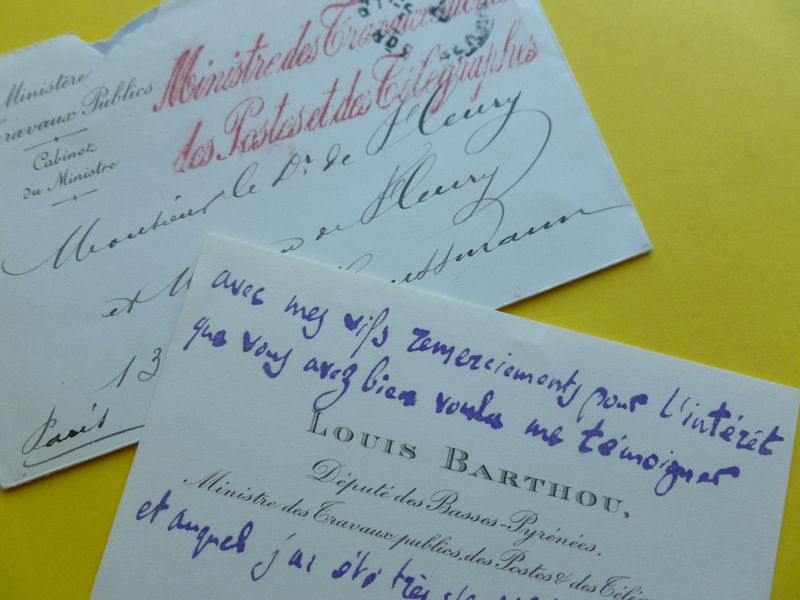 Ministère
Travaux Publics
Cabinet
du Ministre
Ministre des Travaux
des Postes et des Télégraphes
Monsieur le Dr. de Fleury
et de Fleury
13
Paris
avec mes vifs remerciements pour l'intérêt
que vous avez bien voulu me témoigner
LOUIS BARTHOU,
Député des Basses-Pyrénées,
Ministre des Travaux publics, des Postes & des Télég
et auquel j'ai été très